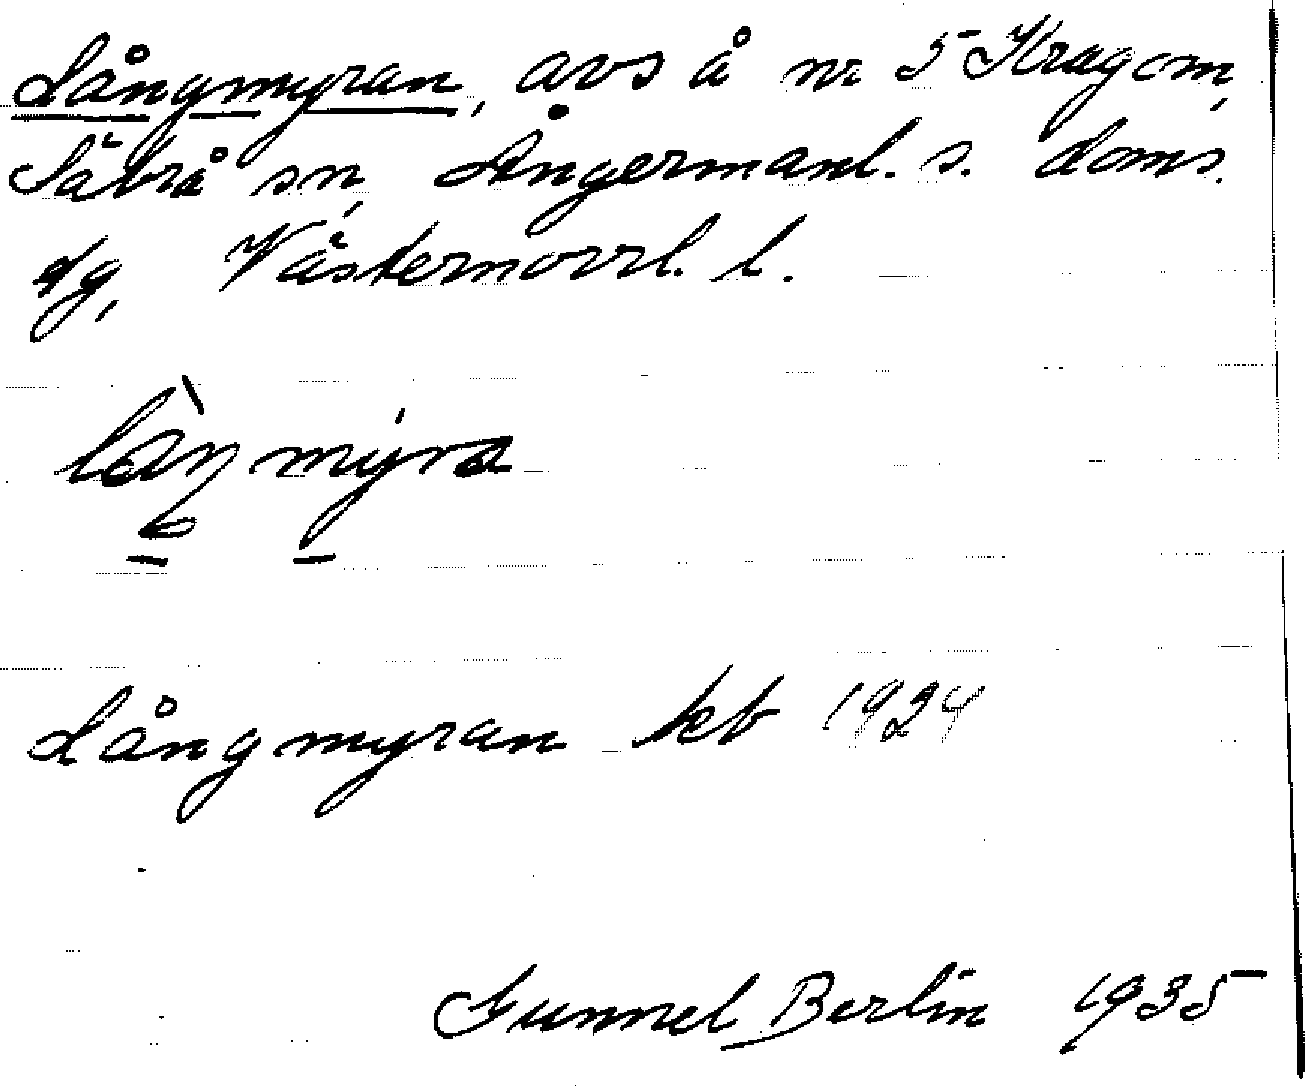 Långmyran, avs å nr 5 Kragom,
Säbrå sn, Ångermanl. s. doms.
dg, Västernorrl. l.
Långmyran kb 1924
Gunnel Berlin 1935